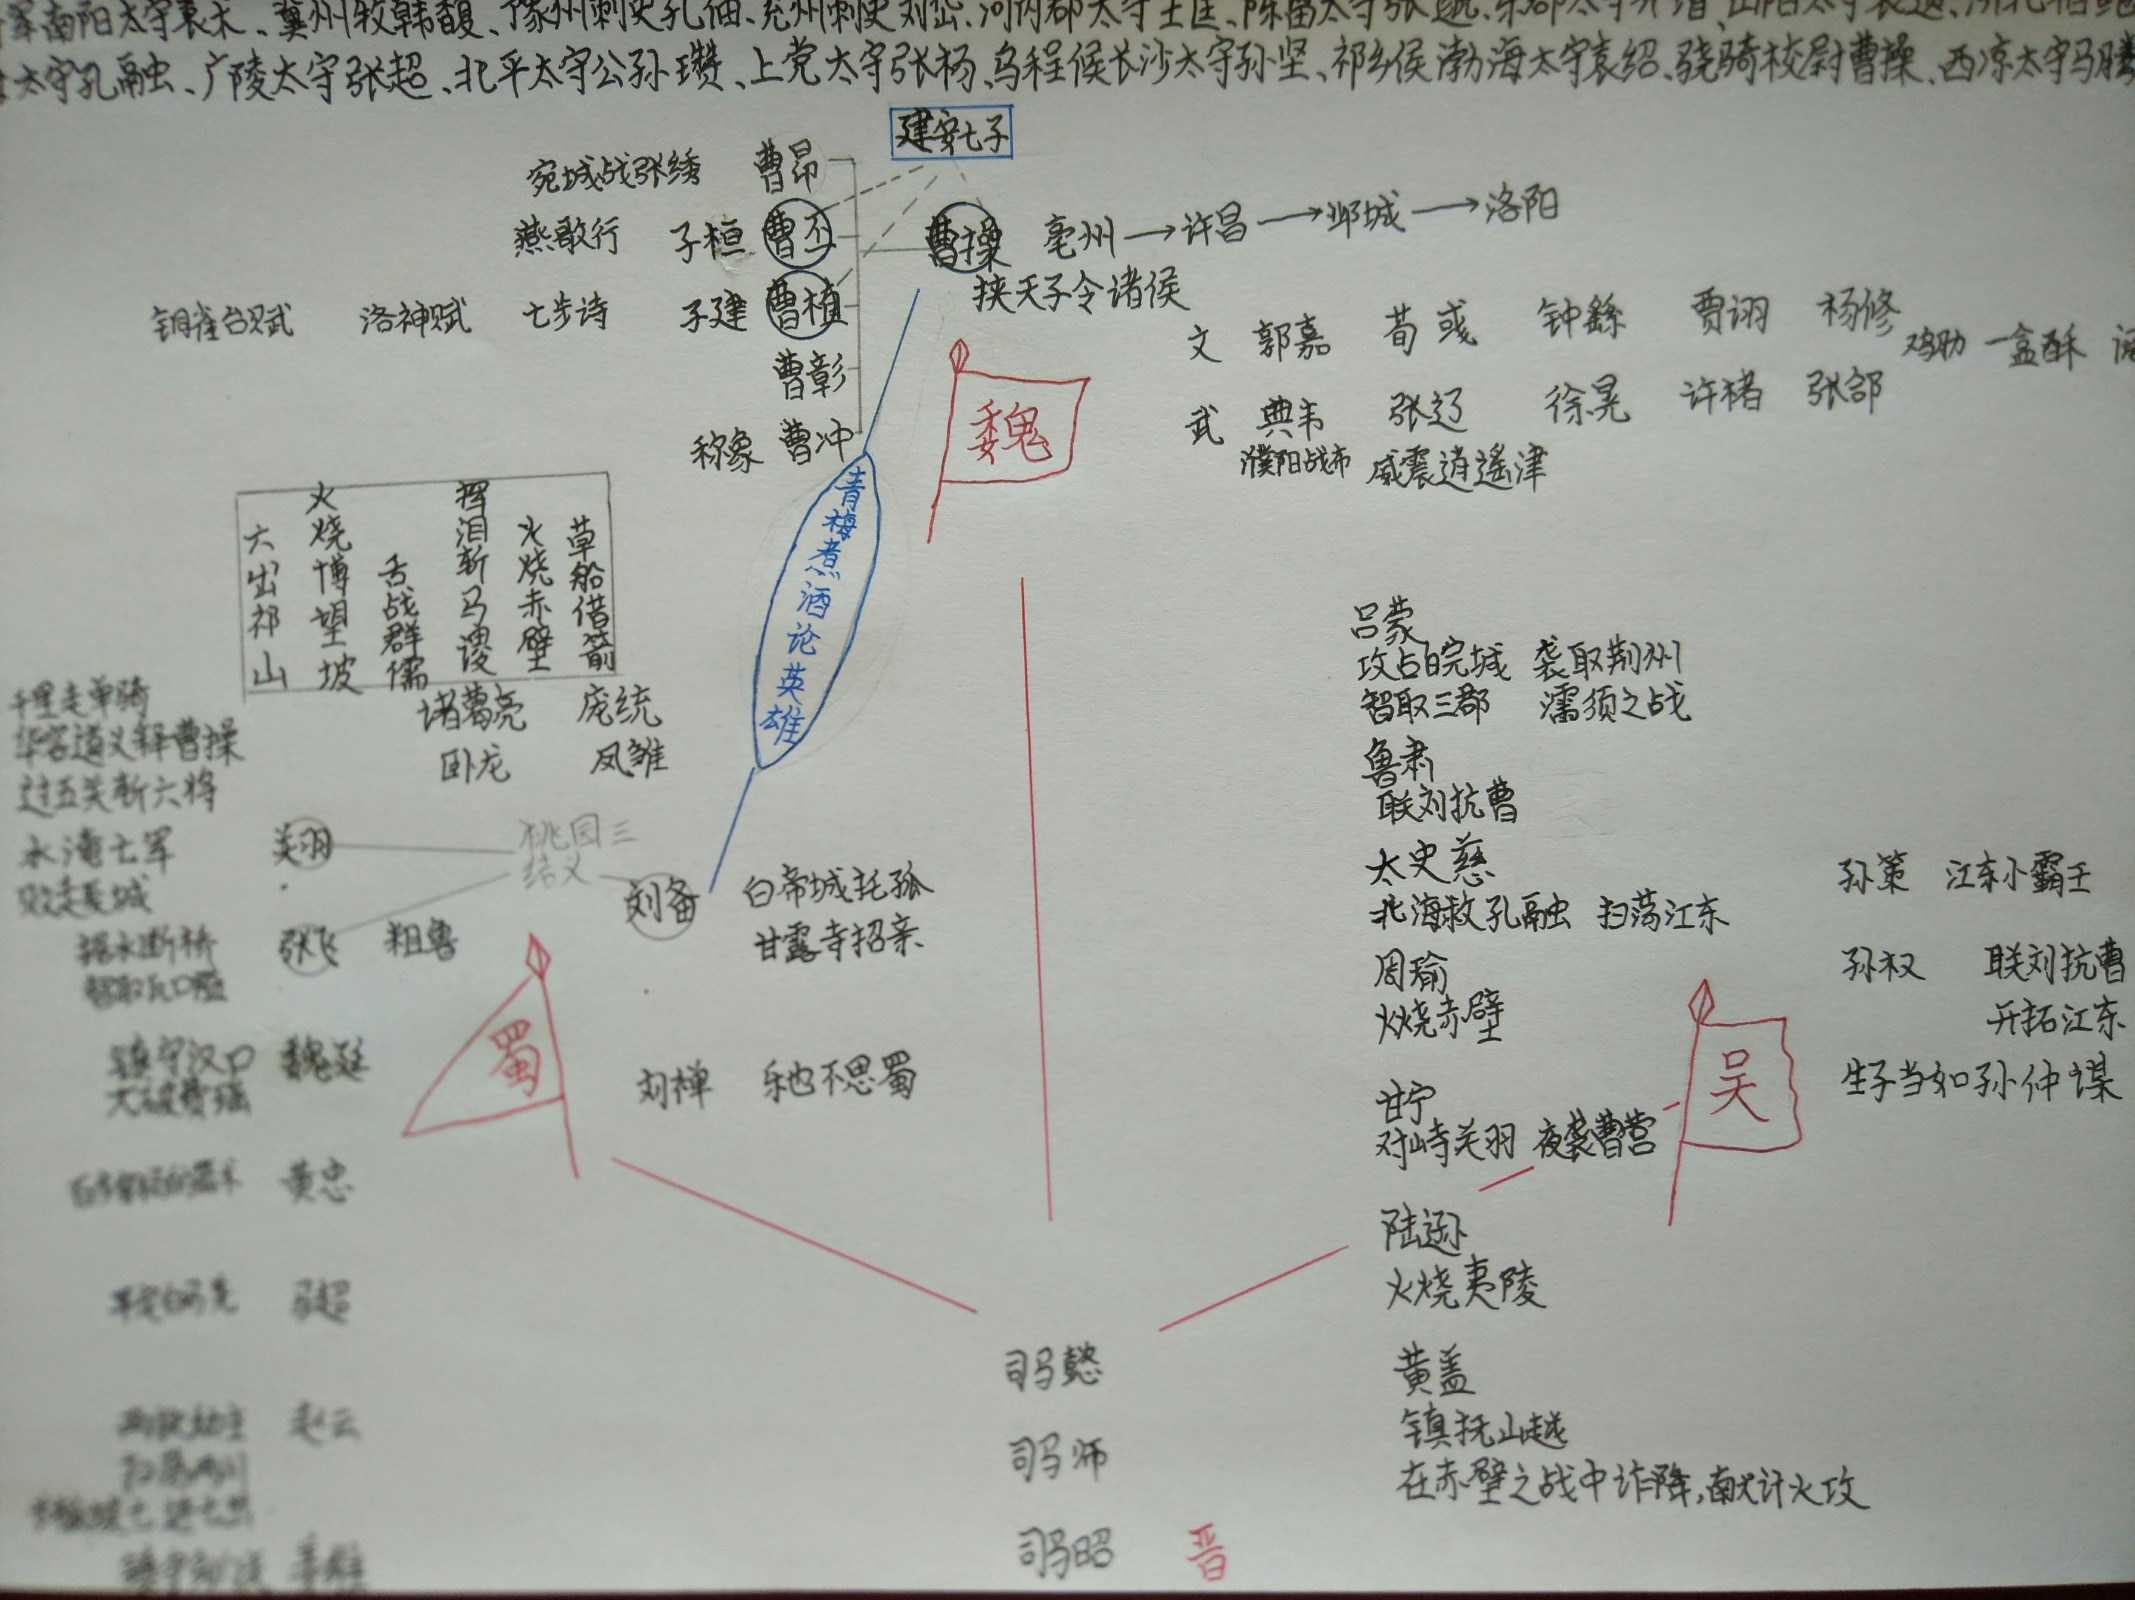 南阳太守袁术、冀州牧韩馥、豫州刺史孔伷、兖州刺史刘岱、河内郡太守王匡、陈留太守张邈、东郡太守乔瑁、山阳太守袁遗、济北相鲍
太守孔融、广陵太守张超、北平太守公孙瓒、上党太守张杨、乌程侯长沙太守孙坚、祁乡侯渤海太守袁绍、骁骑校尉曹操、西凉太守马腾
建安七子
宛城战张绣 曹昂
燕敢行 子桓 曹丕
曹操 亳州→许昌→邺城→洛阳
挟天子令诸侯
铜雀台赋 洛神赋 七步诗 子建 曹植
曹彰
称象 曹冲
文 郭嘉 荀彧 钟繇 贾诩 杨修 鸡肋 一盒酥
武 典韦 张辽 徐晃 许褚 张郃
濮阳战布 威震逍遥津
魏
青梅煮酒论英雄
六出祁山
火烧博望坡
舌战群儒
挥泪斩马谡
火烧赤壁
草船借箭
诸葛亮 庞统
卧龙 凤雏
千里走单骑
华容道义释曹操
过五关斩六将
水淹七军 关羽
败走麦城
桃园三
结义
刘备 白帝城托孤
甘露寺招亲
据水断桥 张飞 粗鲁
智取瓦口隘
蜀
镇守汉口 魏延
大破费瑶
刘禅 乐也不思蜀
黄忠
马超
赵云
姜维
吕蒙
攻占皖城 袭取荆州
智取三郡 濡须之战
鲁肃
联刘抗曹
太史慈
北海救孔融 扫荡江东
周瑜
火烧赤壁
甘宁
对峙关羽 夜袭曹营
陆逊
火烧夷陵
黄盖
镇抚山越
在赤壁之战中诈降,献计火攻
孙策 江东小霸王
孙权 联刘抗曹
开拓江东
生子当如孙仲谋
吴
司马懿
司马师
司马昭 晋